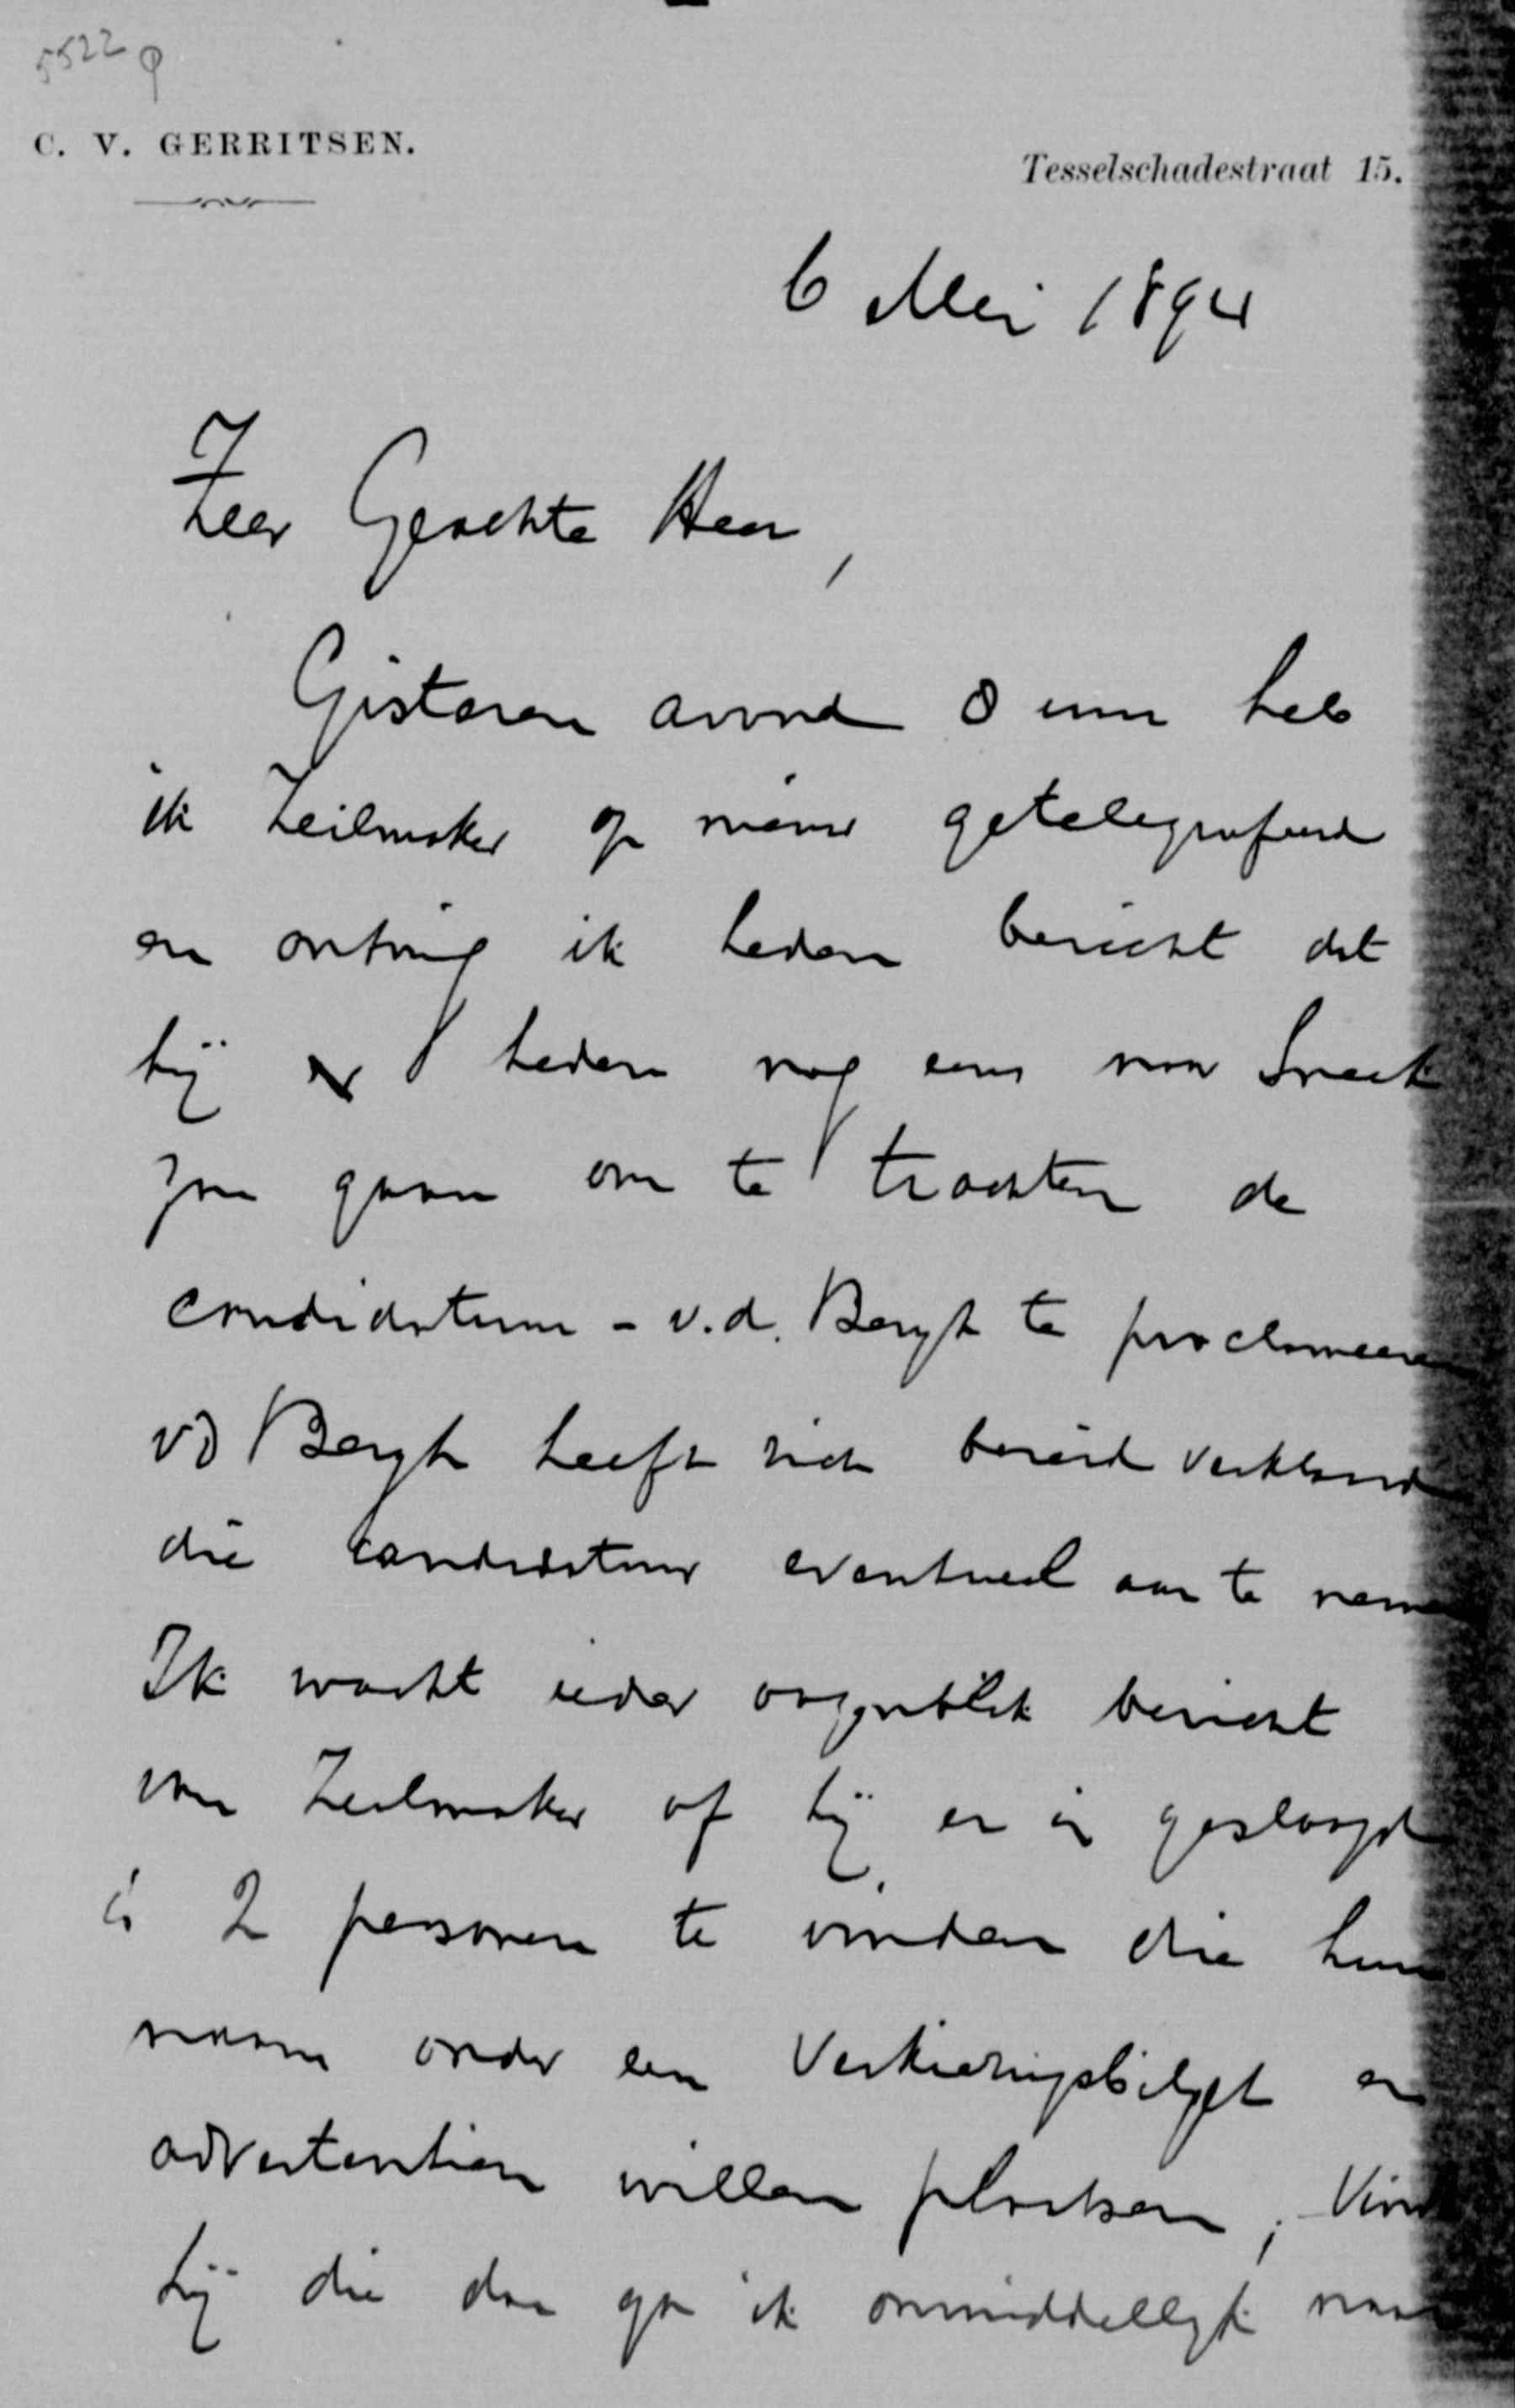 5522 φ
C. V. GERRITSEN.
Tesselschadestraat 15.
6 Mei 1894
Zeer Geachte Heer,
Gisteren avond 8 uur heb
ik Zeilmaker op nieuw getelegrafeerd
en ontving ik heden bericht dat
hij heden nog eens naar Sneek
zou gaan om te trachten de
candidatuur - v.d. Bergh te proclameeren
vd Bergh heeft zich bereid verklaard
die candidatuur eventueel aan te nemen
Ik wacht ieder oogenblik bericht
van Zeilmaker of hij er in geslaagd
is 2 personen te vinden die hun
naam onder een Verkiezingsbiljet en
advertentien willen plaatsen; Vindt
hij die dan ga ik onmiddellijk naar